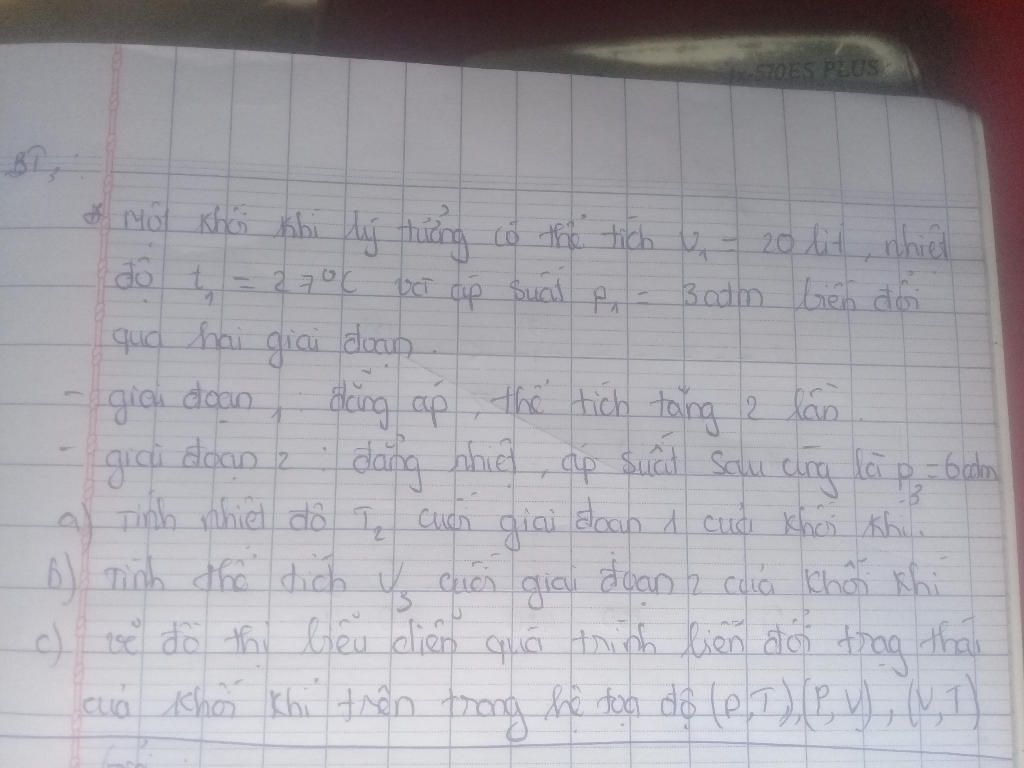 fx-570ES PLUS
BT3:
Một khối khí lý tưởng có thể tích V1 = 20 lit, nhiệt
độ t1 = 27°C với áp suất P1 = 3atm biến đổi
qua hai giai đoạn.
- giai đoạn 1: đẳng áp, thể tích tăng 2 lần.
- giai đoạn 2: đẳng nhiệt, áp suất sau cùng là P3 = 6atm
a) Tính nhiệt độ T2 cuối giai đoạn 1 của khối khí.
b) Tính thể tích V3 cuối giai đoạn 2 của khối khí
c) vẽ đồ thị biểu diễn quá trình biến đổi trạg thái
của khối khí trên trong hệ tọa độ (P,T), (P,V), (V,T)